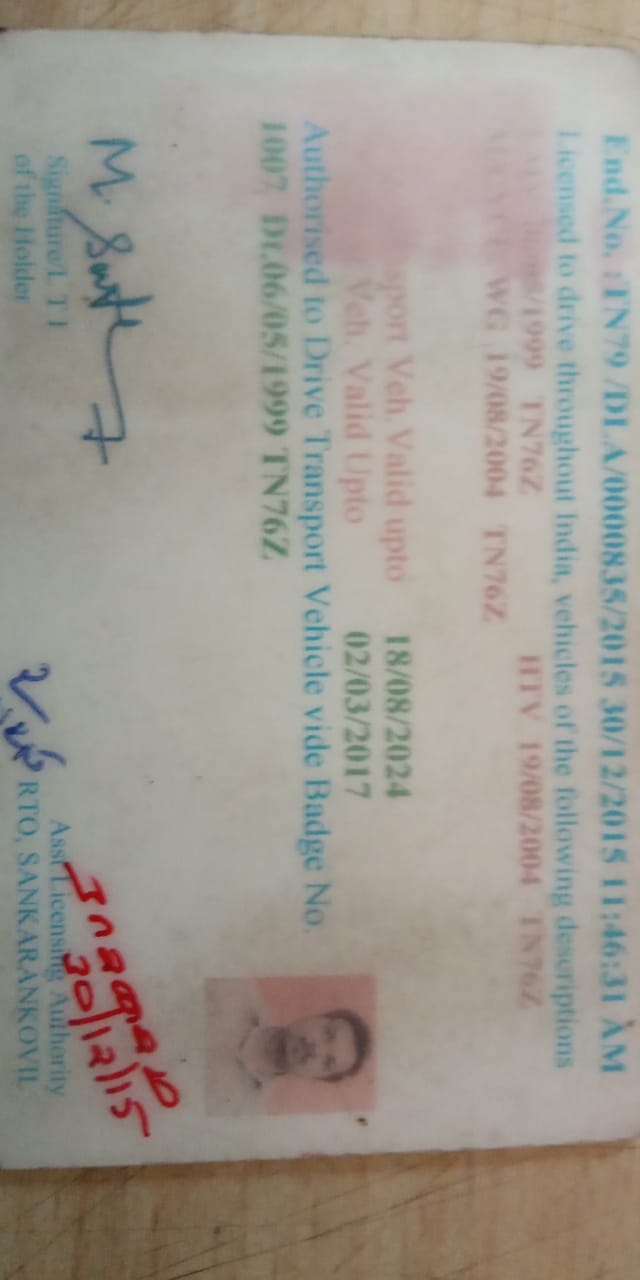 End.No. : TN79 /DLA/0000835/2015 30/12/2015 11:46:31 AM
Licensed to drive throughout India, vehicles of the following descriptions
/1999 TN76Z HTV 19/08/2004 TN76Z
WG 19/08/2004 TN76Z
sport Veh.Valid upto 18/08/2024
Veh. Valid Upto 02/03/2017
Authorised to Drive Transport Vehicle vide Badge No.
1007 Dt.06/05/1999 TN76Z
M.
Signature/L T I
of the Holder
Asst Licensing Authority
RTO, SANKARANKOVIL
30/12/15